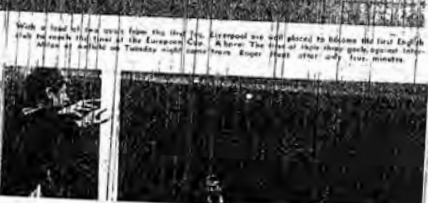 With a lead of two goals from the first leg, Liverpool are well placed to become the first English
club to reach the final of the European Cup. Above: The first of their three goals against Inter-
Milan at Anfield on Tuesday night comes from Roger Hunt after only five minutes.